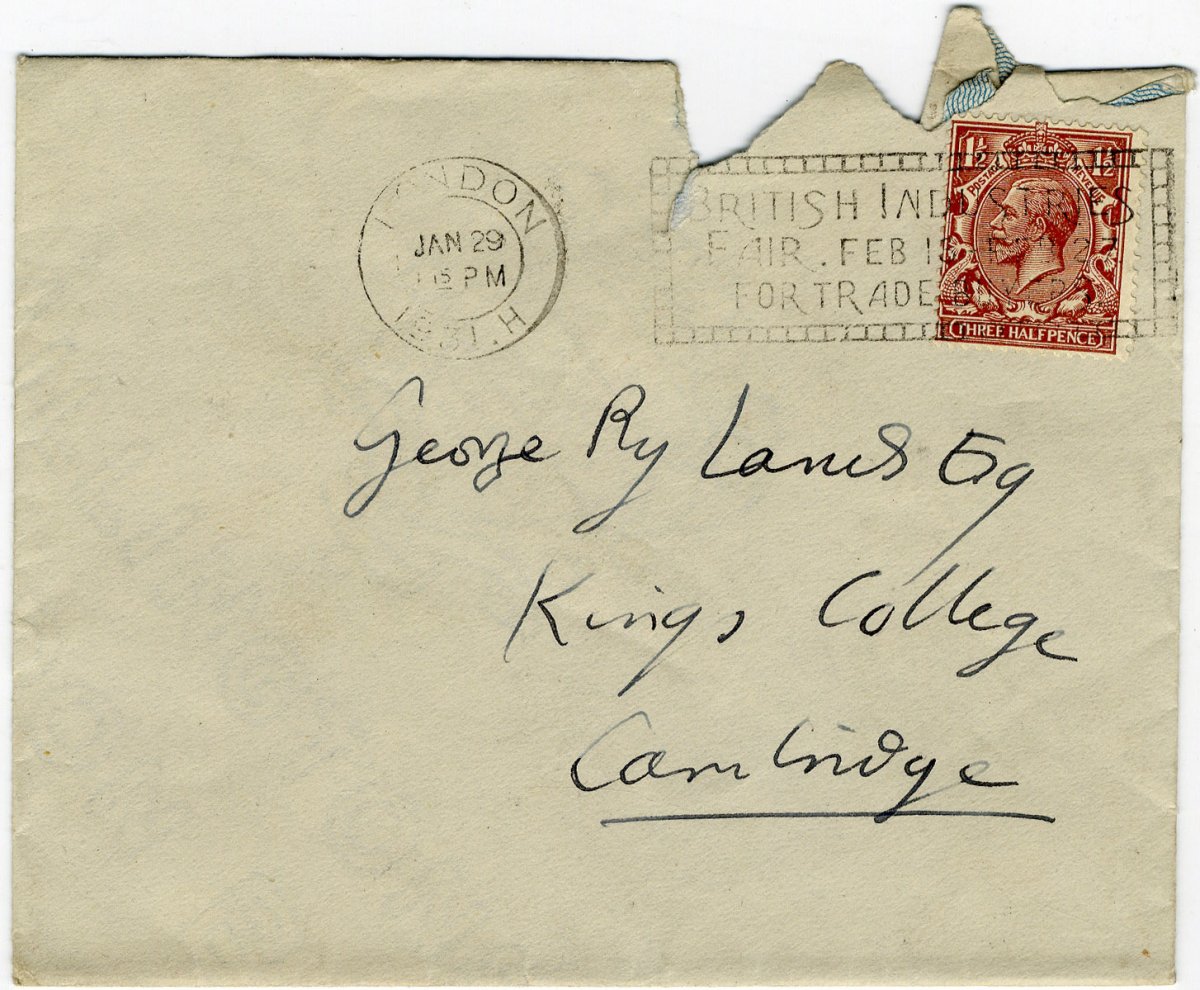 LONDON
JAN 29
15 PM
1931. H
BRITISH INDUSTRIES
FAIR. FEB 16 - FEB 27
FOR TRADE BUYERS
1½ 1½
POSTAGE REVENUE
THREE HALFPENCE
George Rylands Esq
Kings College
Cambridge